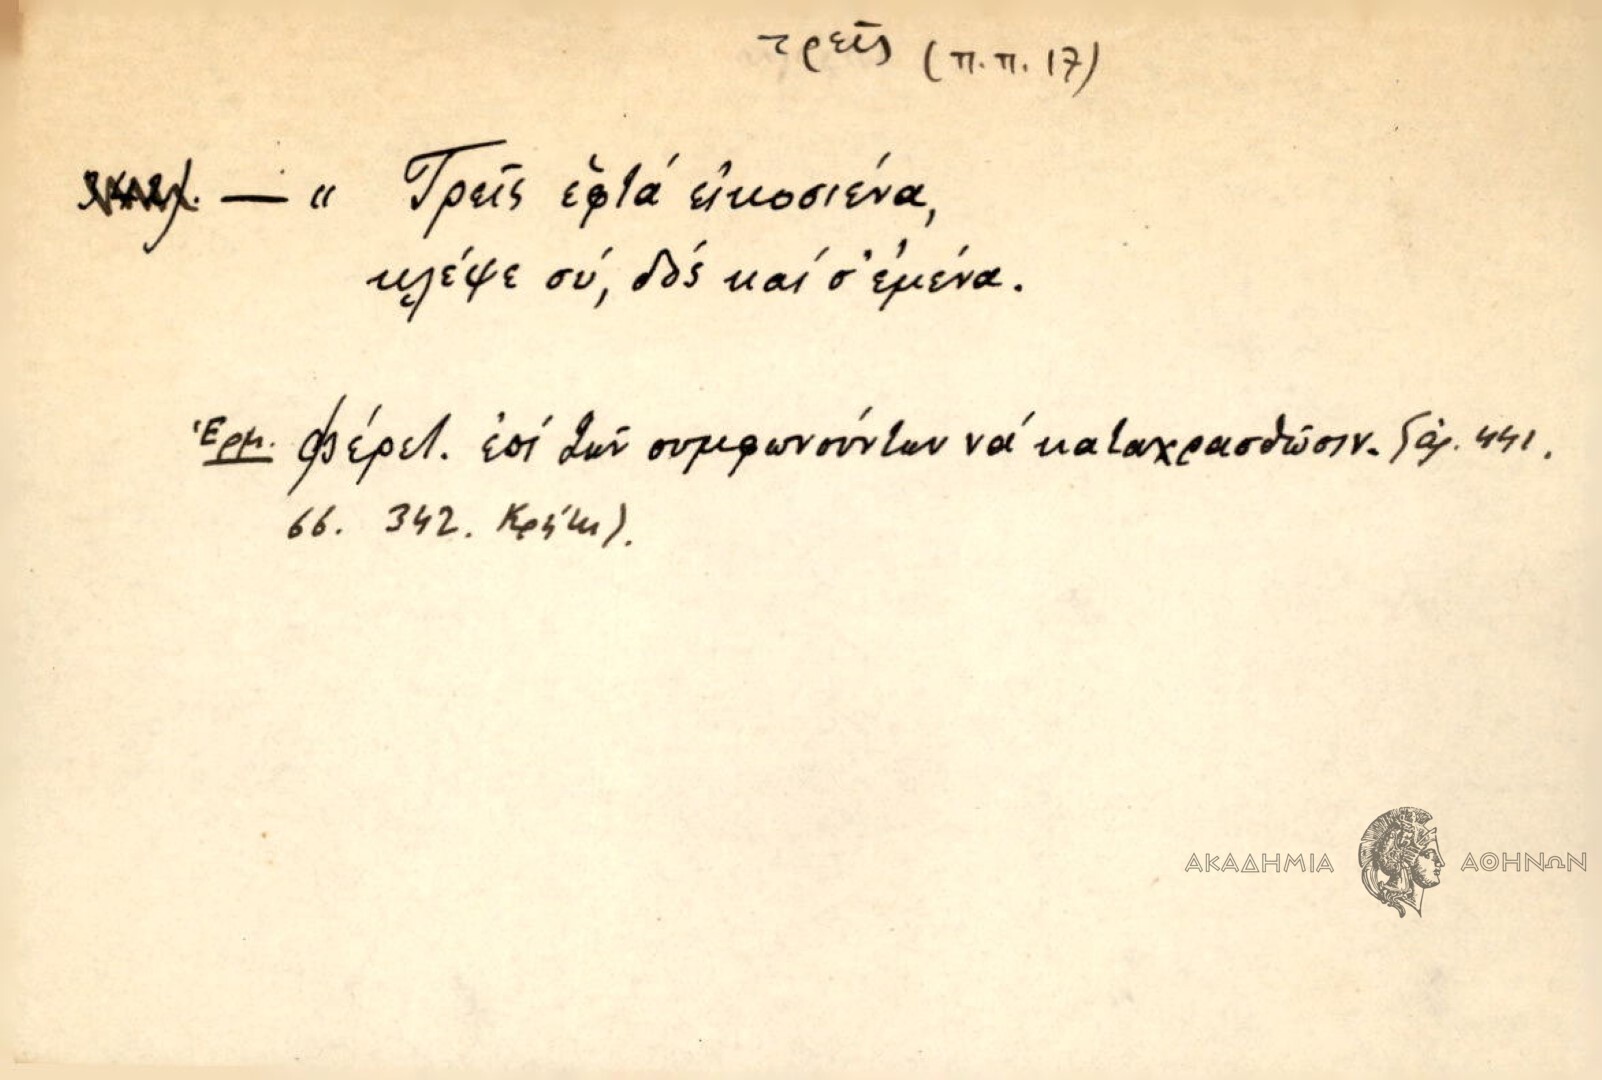 τρεῖς (π.π. 17)
— « Τρεῖς ἑφτά εἰκοσιένα,
κλέψε σύ, δός καί σ' ἐμένα.
Ἑρμ. Φέρετ. ἐπί τῶν συμφωνούντων νά καταχρασθῶσιν. (ἀρ. 441.
66. 342. Κρήτη).
ΑΚΑΔΗΜΙΑ ΑΘΗΝΩΝ